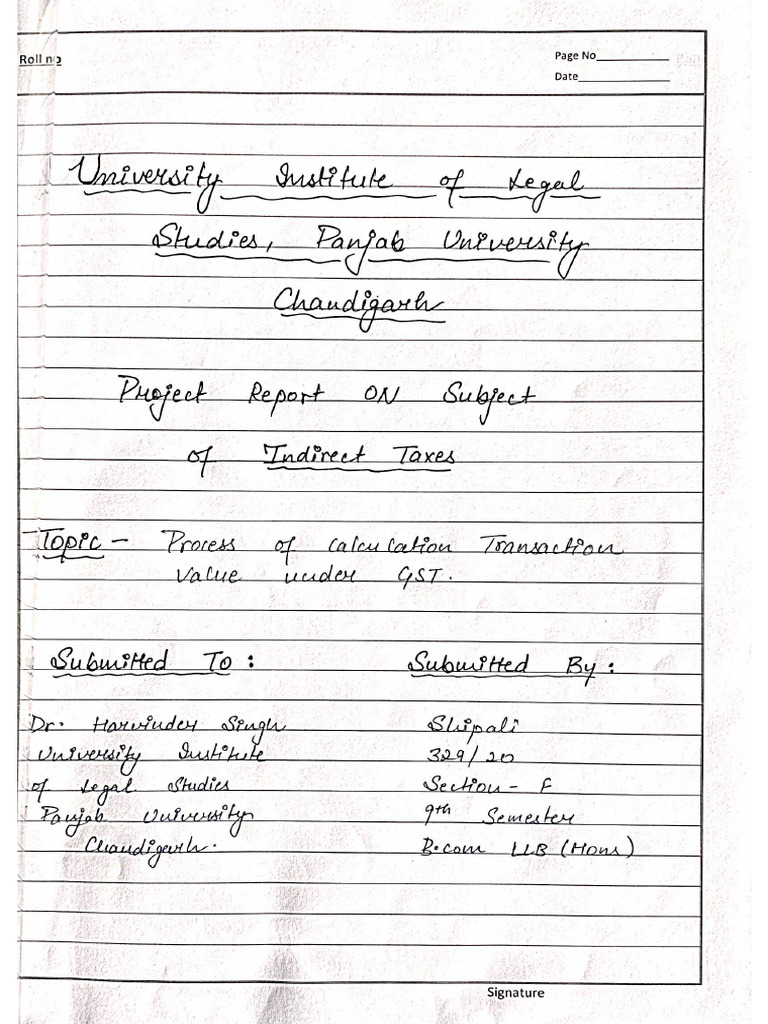 Roll no
Page No
Date
University Institute of Legal
Studies, Panjab University
Chandigarh
Project Report ON Subject
of Indirect Taxes
Topic - Process of Calculation Transaction
Value under GST.
Submitted To :
Submitted By :
Dr. Harvinder Singh
Shipali
University Institute
329/20
of Legal Studies
Section - F
Panjab University
9th Semester
Chandigarh.
B.com LLB (Hons)
Signature